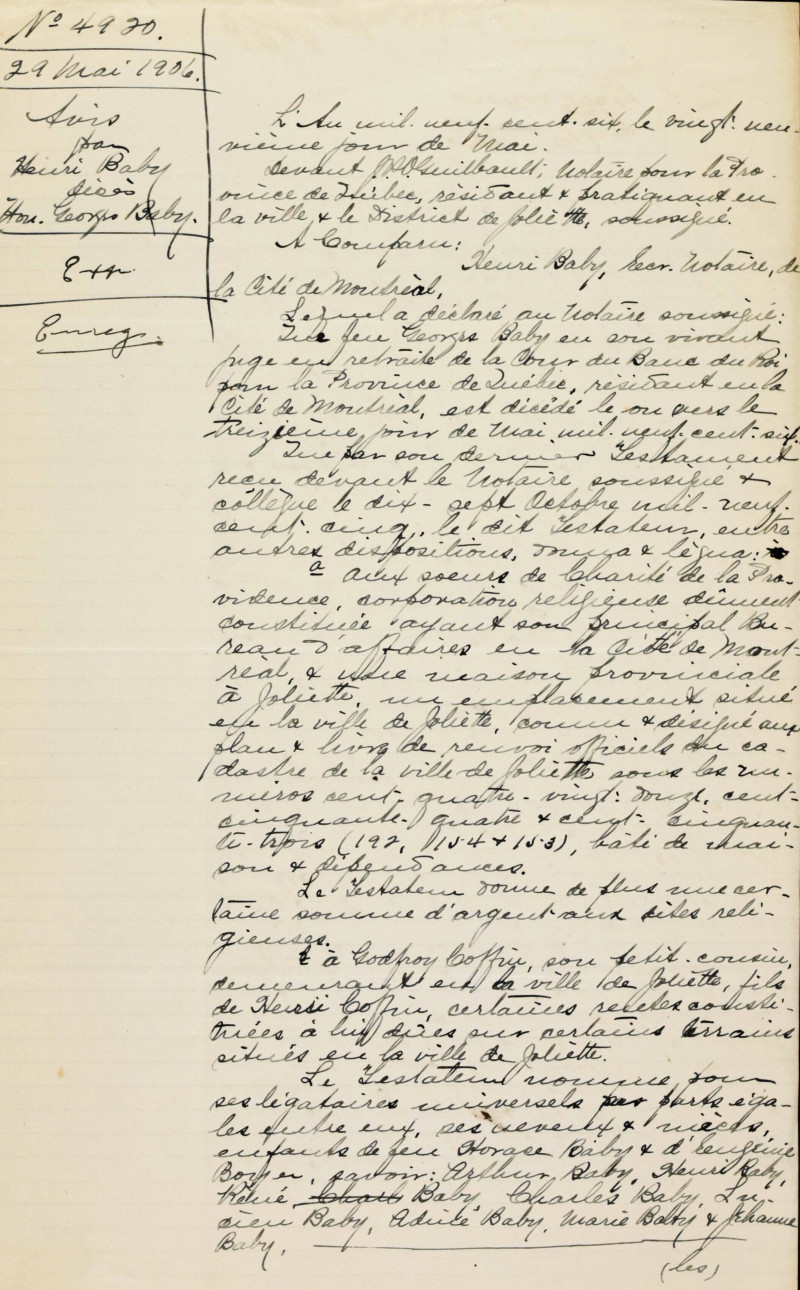 No 4920.
29 Mai 1906.
Avis
par
Henri Baby
décès
Hon. Georges Baby.
Exp.
Enreg.
L'An mil. neuf. cent. six, le vingt. neu-
vième jour de Mai.
Devant J. O. Guilbault, Notaire pour la Pro-
vince de Québec, résidant & pratiquant en
la ville & le District de Joliette, soussigné.
A Comparu:
Henri Baby, Ecr. Notaire, de
la Cité de Montréal,
Lequel a déclaré au Notaire soussigné:
Que feu Georges Baby en son vivant
juge en retraite de la Cour du Banc du Roi
pour la Province de Québec, résidant en la
Cité de Montréal, est décédé le ou vers le
treizième jour de Mai mil. neuf. cent. six.
Que par son dernier Testament
reçu devant le Notaire soussigné &
collègue le dix-sept Octobre mil-neuf.
cent. cinq, le dit Testateur, entre
autres dispositions, donna & légua:
a aux soeurs de Charité de la Pro-
vidence, corporation religieuse dûment
constituée ayant son principal Bu-
reau d'affaires en la Cité de Mont-
réal, & une maison provinciale
à Joliette, un emplacement situé
en la ville de Joliette, connu & désigné aux
plan & livre de renvoi officiels du ca-
dastre de la ville de Joliette sous les nu-
méros cent-quatre-vingt-douze, cent-
cinquante-quatre & cent-cinquan-
te-trois (192, 154 & 153), bâti de mai-
son & dépendances.
Le Testateur donne de plus une cer-
taine somme d'argent aux dites reli-
gieuses.
à Godfroy Coffin, son petit-cousin,
demeurant en la ville de Joliette, fils
de Henri Coffin, certaines rentes consti-
tuées à lui dûes sur certains terrains
situés en la ville de Joliette.
Le Testateur nomme pour
ses légataires universels par parts éga-
les entre eux, ses neveux & nièces,
enfants de feu Horace Baby & d'Eugénie
Boyer, savoir: Arthur Baby, Henri Baby,
René Baby, Charles Baby, Lu-
cien Baby, Baby, Marie Baby & Jehanne
Baby,
(les)